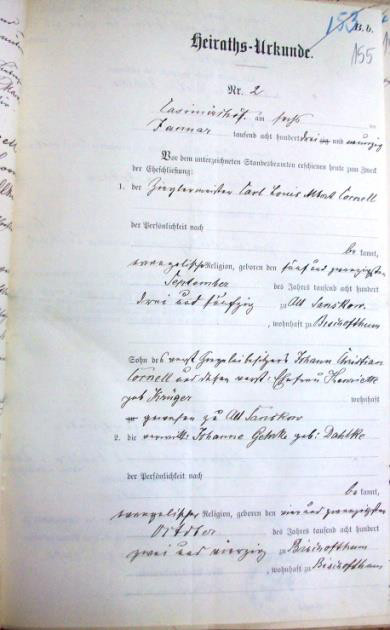 B. b.
155
Heiraths-Urkunde.
Nr. 2
Casimirshof am sechs ten
Januar tausend acht hundert drei und neunzig
Vor dem unterzeichneten Standesbeamten erschienen heute zum Zweck
der Eheschließung:
1. der Zieglermeister Carl Louis Albert Cornell
der Persönlichkeit nach
be kannt,
evangelischer Religion, geboren den fünf und zwanzigsten
September des Jahres tausend acht hundert
drei und fünfzig zu Alt
, wohnhaft zu Bischofthum
Sohn des verst. Johann Christian
Cornell und dessen verst. Ehefrau Henriette
geb Krüger wohnhaft
gewesen zu Alt
2. die verwitt. Johanne Gehrke geb: Dahlke
der Persönlichkeit nach
be kannt,
evangelischer Religion, geboren den vier und zwanzigsten
October des Jahres tausend acht hundert
zwei und vierzig zu Bischofthum
, wohnhaft zu Bischofthum